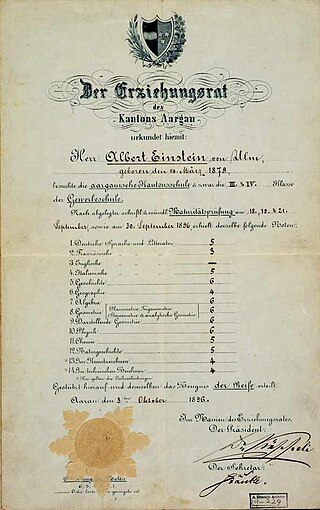 Der Erziehungsrat
des
Kantons Aargau
urkundet hiemit:
Herr Albert Einstein von Ulm,
geboren den 14. März 1879,
besuchte die aargauische Kantonsschule & zwar die III. & IV. Klasse
der Gewerbeschule.
Nach abgelegter schriftl. & mündl. Maturitätsprüfung am 18., 19. & 21.
September, sowie am 30. September 1896, erhielt derselbe folgende Noten:
1. Deutsche Sprache und Litteratur 5
2. Französische 3
3. Englische —
4. Italienische 5
5. Geschichte 6
6. Geographie 4
7. Algebra 6
8. Geometrie Planimetrie, Trigonometrie Stereometrie & analytische Geometrie 6
9. Darstellende Geometrie 6
10. Physik 6
11. Chemie 5
12. Naturgeschichte 5
*13. Im Kunstzeichnen 4
*14. Im technischen Zeichnen 4
* Hier gelten die
Gestützt hierauf wird demselben das Zeugnis der Reife erteilt.
Aarau den 3ten Oktober 1896.
Im Namen des Erziehungsrates,
Der Präsident:
Der Sekretär: